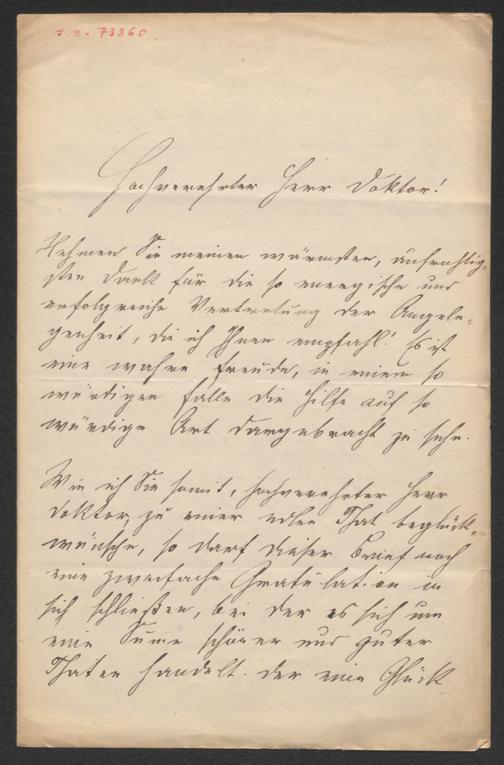 I. N. 73360
Hochverehrter Herr Doktor!
Nehmen Sie meinen wärmsten, aufrichtig-
sten Dank für die so energische und
erfolgreiche Vertretung der Angele-
genheit, die ich Ihnen empfahl! Es ist
eine wahre Freude, in einem so
würdigen Falle die Hilfe auf so
würdige Art dargebracht zu sehn.
Wie ich Sie somit, hochverehrter Herr
Doktor, zu einer edlen That beglück-
wünsche, so darf dieser Brief noch
eine zweifache Gratulation in
sich schließen, bei der es sich um
eine Sume schöner und guter
Thaten handelt. Der eine Glück